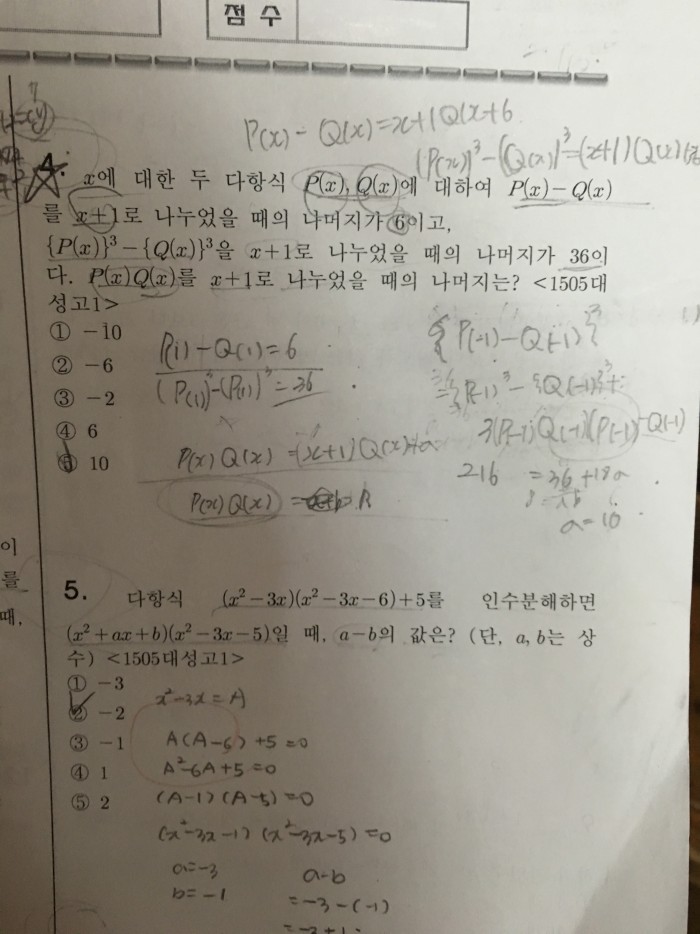 점 수
P(x) - Q(x) = x+1 Q(x)+6
(P(x))³-(Q(x))³=(x+1)Q(x)
4. x에 대한 두 다항식 P(x), Q(x)에 대하여 P(x)-Q(x)
를 x+1로 나누었을 때의 나머지가 6이고,
{P(x)}³-{Q(x)}³을 x+1로 나누었을 때의 나머지가 36이
다. P(x)Q(x)를 x+1로 나누었을 때의 나머지는? <1505대
성고1>
① -10
② -6
③ -2
④ 6
⑤ 10
P(1)-Q(1)=6
(P(1))³-(P(1))³=36
P(x)Q(x) =(x+1)Q(x)+a
P(x)Q(x) =
{P(-1)-Q(-1)}³
3(P(-1)Q(-1)(P(-1)-Q(-1)
216 =36+18a
a=10
이
를
때,
5. 다항식 (x²-3x)(x²-3x-6)+5를 인수분해하면
(x²+ax+b)(x²-3x-5)일 때, a-b의 값은? (단, a, b는 상
수) <1505대성고1>
① -3
② -2
③ -1
④ 1
⑤ 2
x²-3x=A
A(A-6)+5=0
A²-6A+5=0
(A-1)(A-5)=0
(x²-3x-1)(x²-3x-5)=0
a=-3
b=-1
a-b
=-3-(-1)
=-3+1